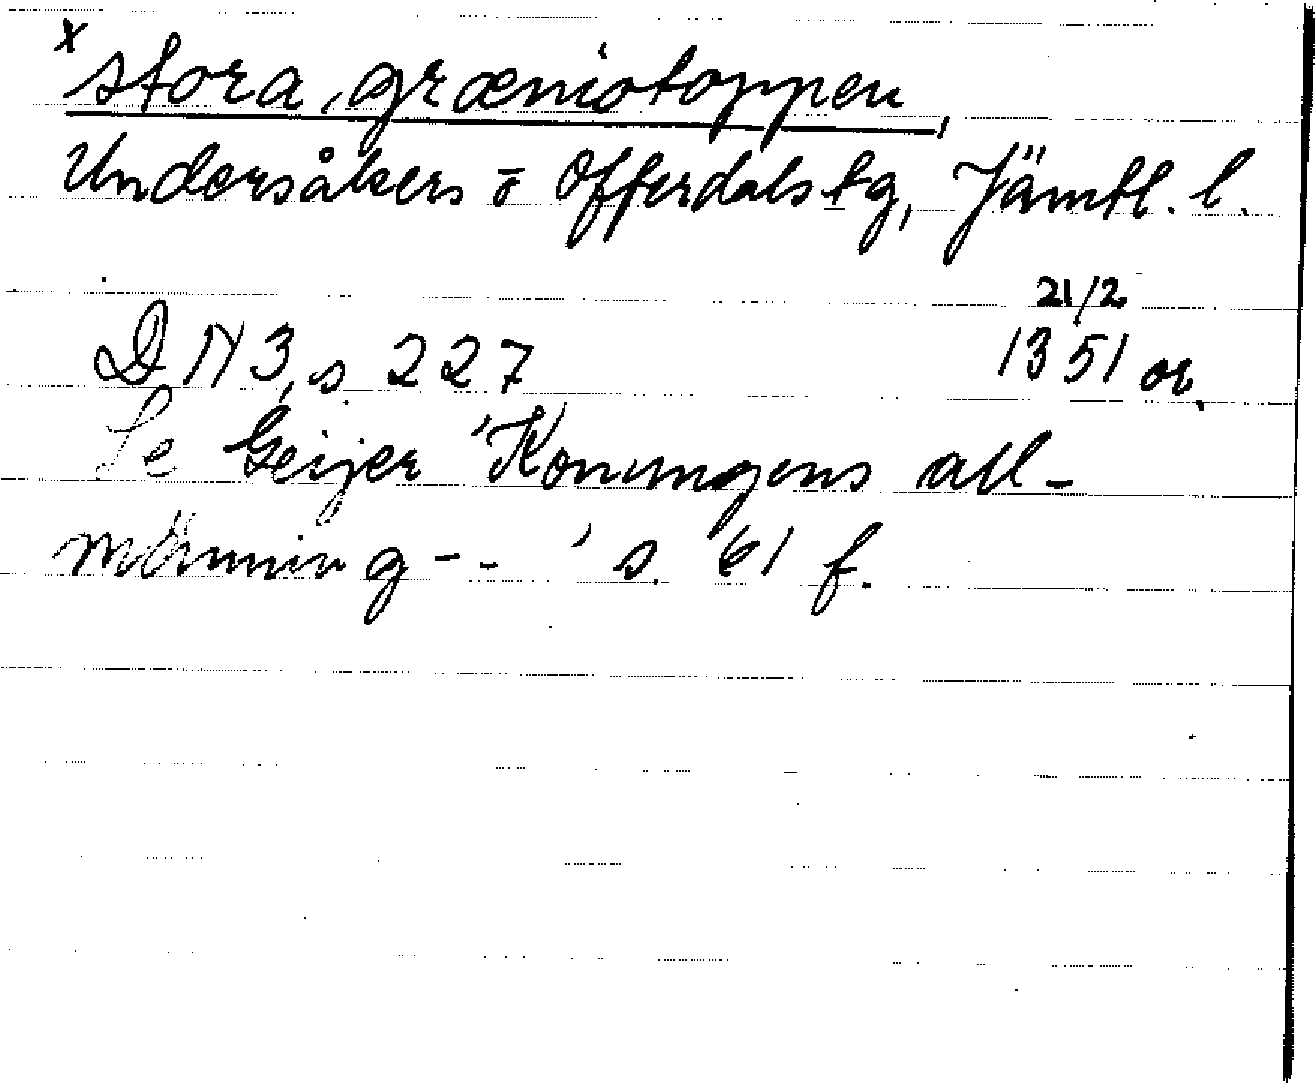 x stora, græniotoppen,
Undersåkers o Offerdals tg, Jämtl. l.
21/2
DN 3, s. 227 1351 or.
Se Geijer 'Konungens all-
männing -- ' s. 61 f.